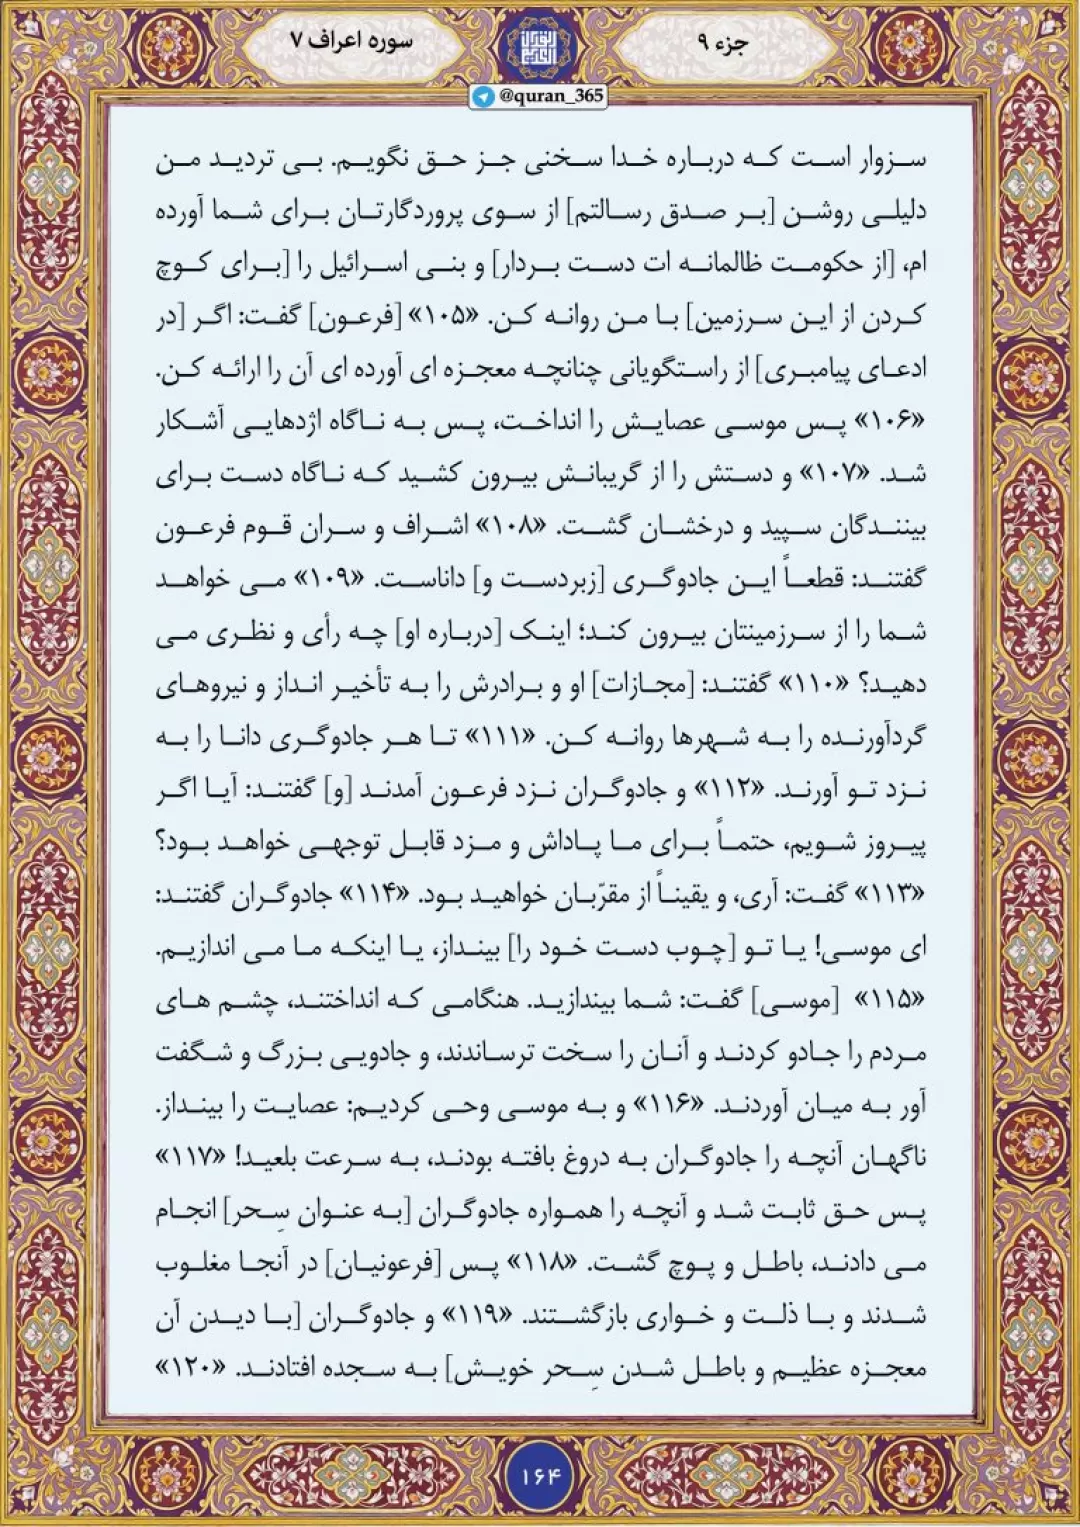 جزء ۹
سوره اعراف ۷
@quran_365
سزوار است که درباره خدا سخنی جز حق نگویم. بی تردید من
دلیلی روشن [بر صدق رسالتم] از سوی پروردگارتان برای شما آورده
ام، [از حکومت ظالمانه ات دست بردار] و بنی اسرائیل را [برای کوچ
کردن از این سرزمین] با من روانه کن. «۱۰۵» [فرعون] گفت: اگر [در
ادعای پیامبری] از راستگویانی چنانچه معجزه ای آورده ای آن را ارائه کن.
«۱۰۶» پس موسی عصایش را انداخت، پس به ناگاه اژدهایی آشکار
شد. «۱۰۷» و دستش را از گریبانش بیرون کشید که ناگاه دست برای
بینندگان سپید و درخشان گشت. «۱۰۸» اشراف و سران قوم فرعون
گفتند: قطعاً این جادوگری [زبردست و] داناست. «۱۰۹» می خواهد
شما را از سرزمینتان بیرون کند؛ اینک [درباره او] چه رأی و نظری می
دهید؟ «۱۱۰» گفتند: [مجازات] او و برادرش را به تأخیر انداز و نیروهای
گردآورنده را به شهرها روانه کن. «۱۱۱» تا هر جادوگری دانا را به
نزد تو آورند. «۱۱۲» و جادوگران نزد فرعون آمدند [و] گفتند: آیا اگر
پیروز شویم، حتماً برای ما پاداش و مزد قابل توجهی خواهد بود؟
«۱۱۳» گفت: آری، و یقیناً از مقرّبان خواهید بود. «۱۱۴» جادوگران گفتند:
ای موسی! یا تو [چوب دست خود را] بینداز، یا اینکه ما می اندازیم.
«۱۱۵» [موسی] گفت: شما بیندازید. هنگامی که انداختند، چشم های
مردم را جادو کردند و آنان را سخت ترساندند، و جادویی بزرگ و شگفت
آور به میان آوردند. «۱۱۶» و به موسی وحی کردیم: عصایت را بینداز.
ناگهان آنچه را جادوگران به دروغ بافته بودند، به سرعت بلعید! «۱۱۷»
پس حق ثابت شد و آنچه را همواره جادوگران [به عنوان سِحر] انجام
می دادند، باطل و پوچ گشت. «۱۱۸» پس [فرعونیان] در آنجا مغلوب
شدند و با ذلت و خواری بازگشتند. «۱۱۹» و جادوگران [با دیدن آن
معجزه عظیم و باطل شدن سِحر خویش] به سجده افتادند. «۱۲۰»
۱۶۴